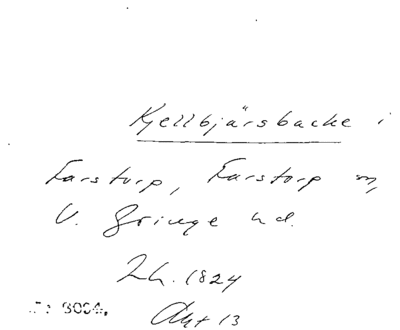 Kjellbjärsbacke i
Farstorp, Farstorp sn,
V. Göinge hd.
Lh. 1824
Akt 13